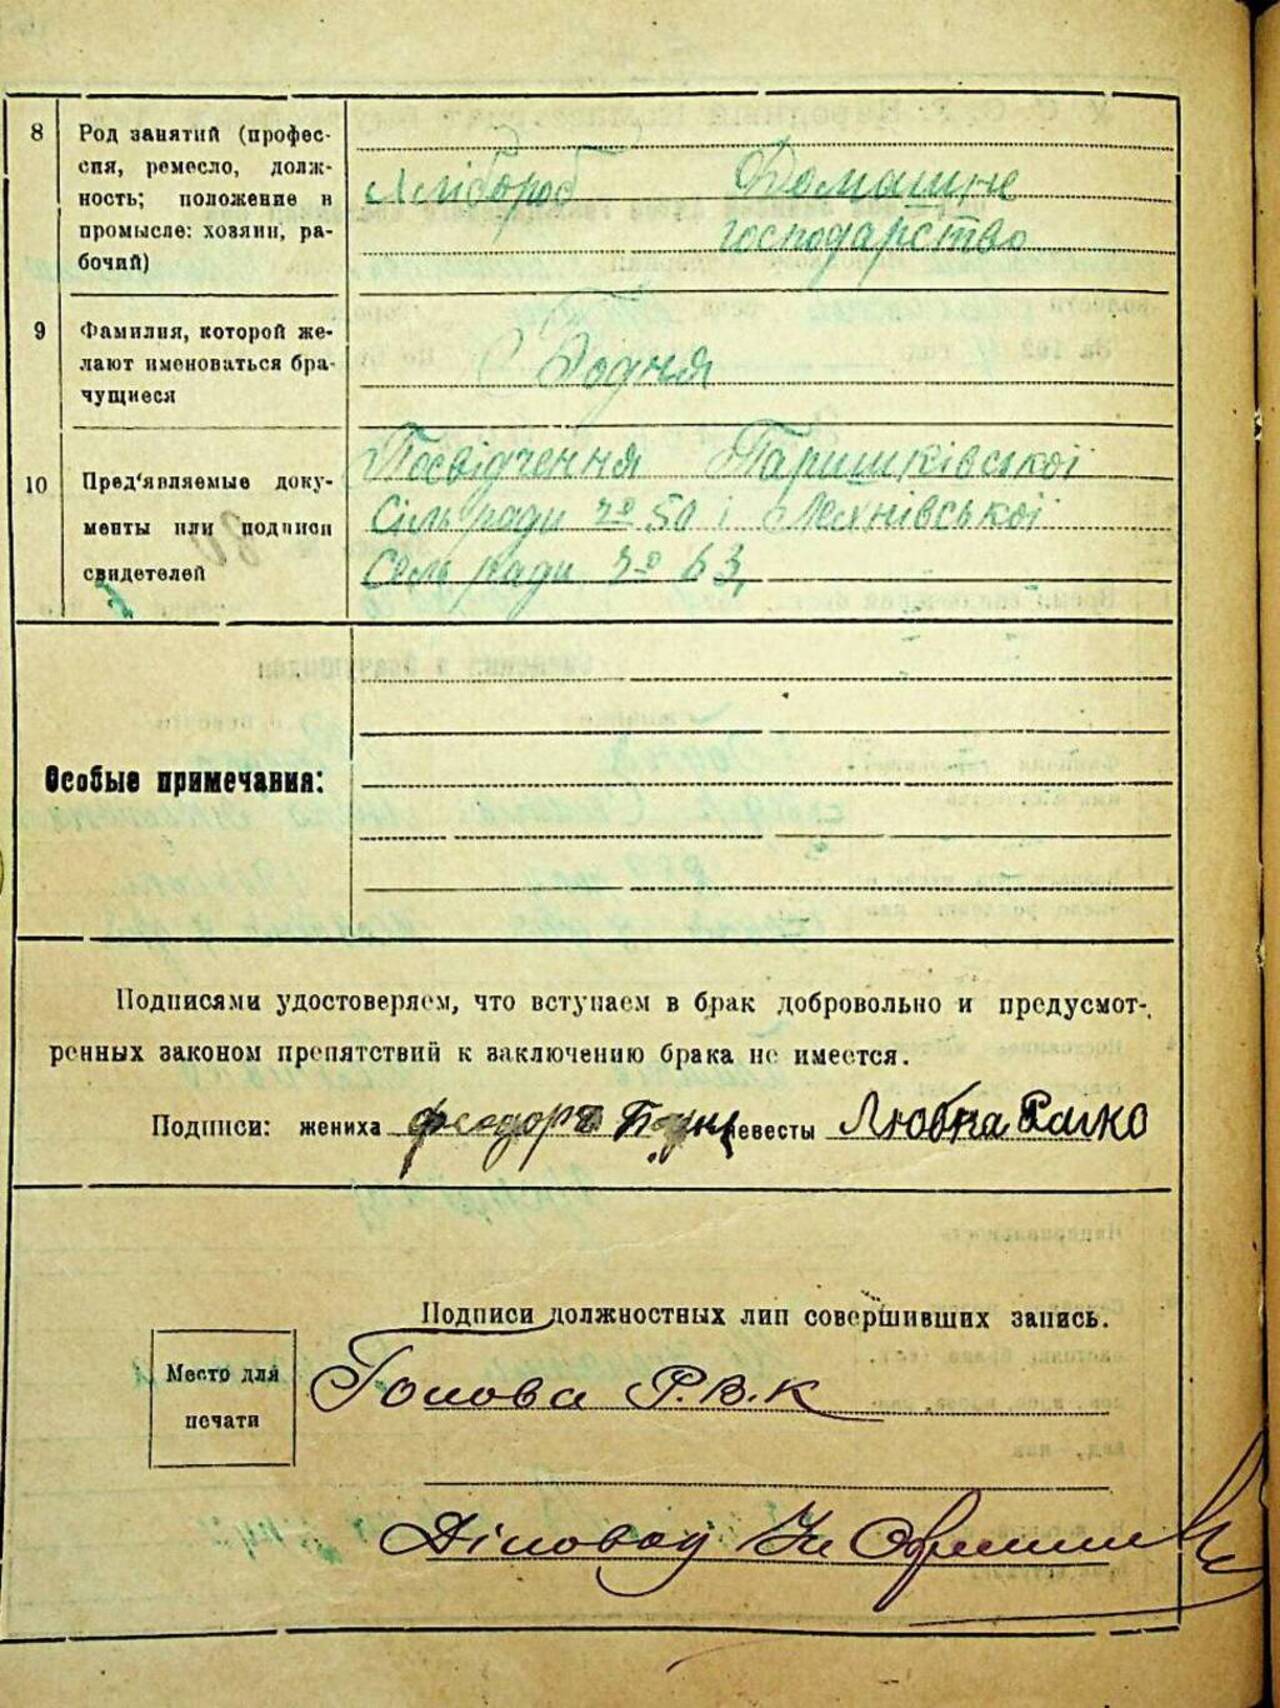 8 Род занятий (профес-
сия, ремесло, долж-
ность; положение в
промысле: хозяин, ра-
бочий)
Хлібороб Домашнє
господарство
9 Фамилия, которой же-
лают именоваться бра-
чущиеся
Бодня
10 Пред'являемые доку-
менты или подписи
свидетелей
Посвідчення Паришківської
Сільради № 50 і Лехнівської
Сельради № 63,
Особые примечания:
Подписями удостоверяем, что вступаем в брак добровольно и предусмот-
ренных законом препятствий к заключению брака не имеется.
Подписи: жениха Феодоръ невесты Любка
Подписи должностных лиц совершивших запись.
Место для
печати
Голова Р.В.К
Діловод